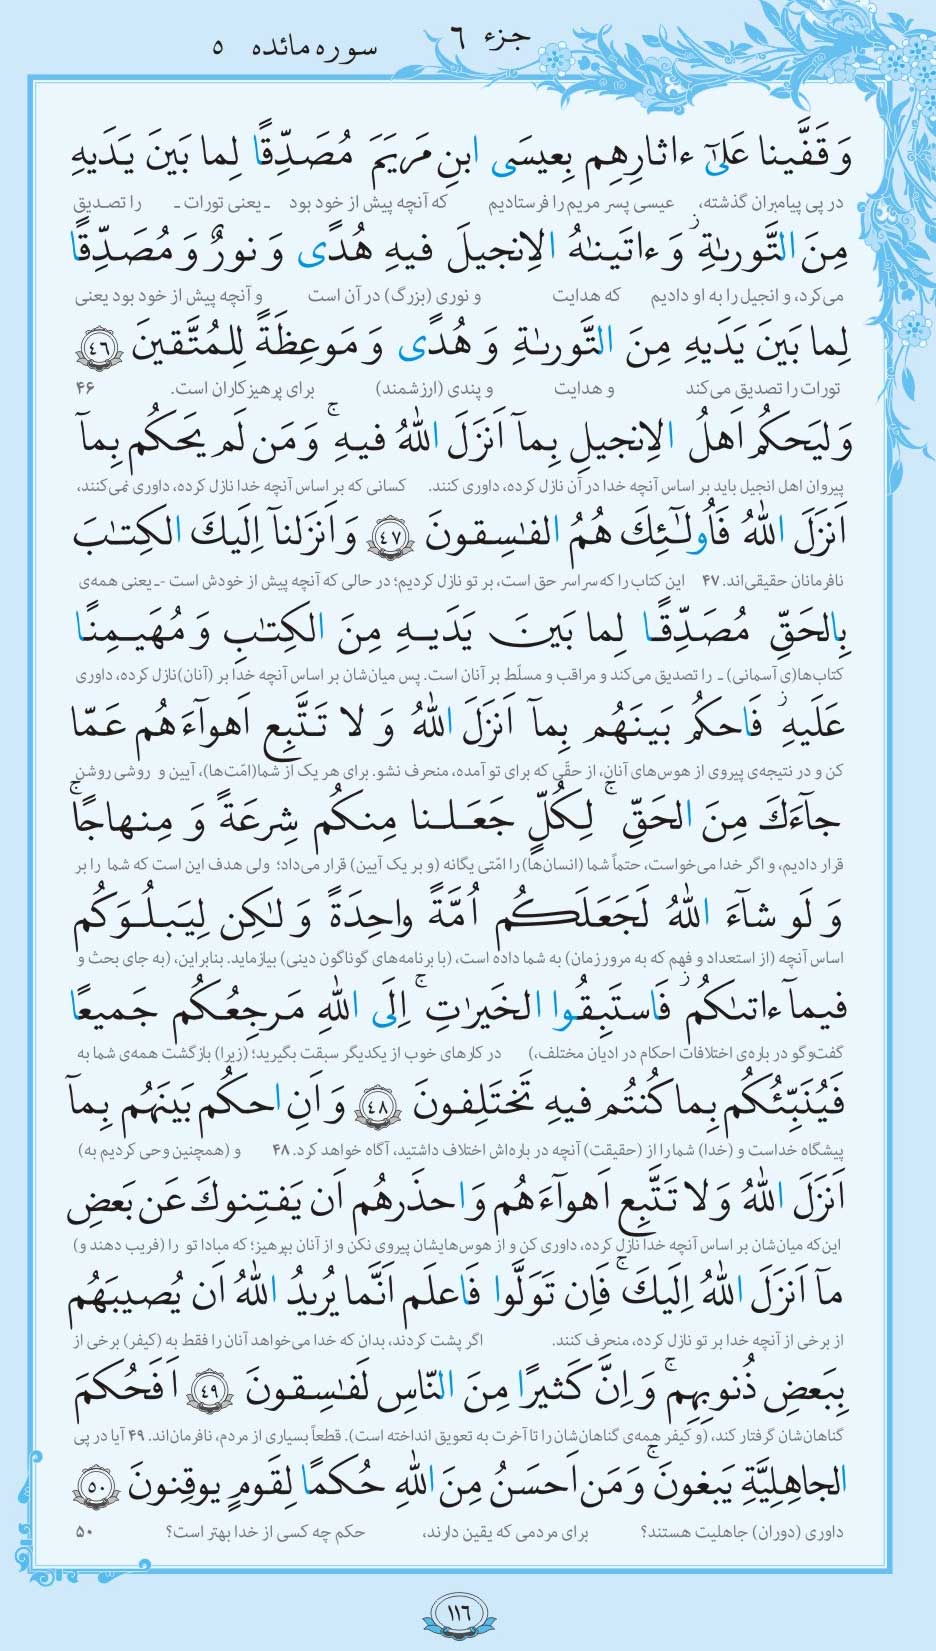 جزء ٦
سوره مائده ٥
وَ قَفَّینا عَلیٰٓ ءاثارِهِم بِعیسَی ابنِ مَریَمَ مُصَدِّقًا لِما بَینَ یَدَیهِ
در پی پیامبران گذشته، عیسی پسر مریم را فرستادیم که آنچه پیش از خود بود ـ یعنی تورات ـ را تصدیق
مِنَ التَّوریٰةِ ۖ وَ ءاتَینٰهُ الاِنجیلَ فیهِ هُدًی وَ نورٌ وَ مُصَدِّقًا
می‌کرد، و انجیل را به او دادیم که هدایت و نوری (بزرگ) در آن است و آنچه پیش از خود بود یعنی
لِما بَینَ یَدَیهِ مِنَ التَّوریٰةِ وَ هُدًی وَ مَوعِظَةً لِلمُتَّقینَ ٤٦
تورات را تصدیق می‌کند و هدایت و پندی (ارزشمند) برای پرهیزکاران است. ۴۶
وَلیَحکُم اَهلُ الاِنجیلِ بِمآ اَنزَلَ اللّٰهُ فیهِ ۚ وَ مَن لَم یَحکُم بِمآ
پیروان اهل انجیل باید بر اساس آنچه خدا در آن نازل کرده، داوری کنند. کسانی که بر اساس آنچه خدا نازل کرده، داوری نمی‌کنند،
اَنزَلَ اللّٰهُ فَاُولٰٓئِكَ هُمُ الفٰسِقونَ ٤٧ وَ اَنزَلنآ اِلَیكَ الکِتٰبَ
نافرمانان حقیقی‌اند. ۴۷ این کتاب را که سراسر حق است، بر تو نازل کردیم؛ در حالی که آنچه پیش از خودش است ـ یعنی همه‌ی
بِالحَقِّ مُصَدِّقًا لِما بَینَ یَدَیهِ مِنَ الکِتٰبِ وَ مُهَیمِنًا
کتاب‌ها(ی آسمانی) ـ را تصدیق می‌کند و مراقب و مسلّط بر آنان است. پس میان‌شان بر اساس آنچه خدا بر (آنان)نازل کرده، داوری
عَلَیهِ ۖ فَاحکُم بَینَهُم بِمآ اَنزَلَ اللّٰهُ وَ لا تَتَّبِع اَهوآءَهُم عَمّا
کن و در نتیجه‌ی پیروی از هوس‌های آنان، از حقّی که برای تو آمده، منحرف نشو. برای هر یک از شما(امّت‌ها)، آیین و روشی روشن
جآءَكَ مِنَ الحَقِّ ۚ لِکُلٍّ جَعَلنا مِنکُم شِرعَةً وَ مِنهاجًا ۚ
قرار دادیم، و اگر خدا می‌خواست، حتماً شما (انسان‌ها) را امّتی یگانه (و بر یک آیین) قرار می‌داد؛ ولی هدف این است که شما را بر
وَ لَو شآءَ اللّٰهُ لَجَعَلَکُم اُمَّةً واحِدَةً وَ لٰکِن لِیَبلُوَکُم
اساس آنچه (از استعداد و فهم که به مرور زمان) به شما داده است، (با برنامه‌های گوناگون دینی) بیازماید. بنابراین، (به جای بحث و
فیمآ ءاتىٰکُم ۖ فَاستَبِقُوا الخَیرٰتِ ۚ اِلَی اللّٰهِ مَرجِعُکُم جَمیعًا
گفت‌وگو در باره‌ی اختلافات احکام در ادیان مختلف،) در کارهای خوب از یکدیگر سبقت بگیرید؛ (زیرا) بازگشت همه‌ی شما به
فَیُنَبِّئُکُم بِما کُنتُم فیهِ تَختَلِفونَ ٤٨ وَ اَنِ احکُم بَینَهُم بِمآ
پیشگاه خداست و (خدا) شما را از (حقیقت) آنچه در باره‌اش اختلاف داشتید، آگاه خواهد کرد. ۴۸ و (همچنین وحی کردیم به)
اَنزَلَ اللّٰهُ وَ لا تَتَّبِع اَهوآءَهُم وَ احذَرهُم اَن یَفتِنوكَ عَن بَعضِ
این‌که میان‌شان بر اساس آنچه خدا نازل کرده، داوری کن و از هوس‌هایشان پیروی نکن و از آنان بپرهیز؛ که مبادا تو را (فریب دهند و)
مآ اَنزَلَ اللّٰهُ اِلَیكَ ۚ فَاِن تَوَلَّوا فَاعلَم اَنَّما یُریدُ اللّٰهُ اَن یُصیبَهُم
از برخی از آنچه خدا بر تو نازل کرده، منحرف کنند. اگر پشت کردند، بدان که خدا می‌خواهد آنان را فقط به (کیفر) برخی از
بِبَعضِ ذُنوبِهِم ۚ وَ اِنَّ کَثیرًا مِنَ النّاسِ لَفٰسِقونَ ٤٩ اَفَحُکمَ
گناهان‌شان گرفتار کند، (و کیفر همه‌ی گناهان‌شان را تا آخرت به تعویق انداخته است). قطعاً بسیاری از مردم، نافرمان‌اند. ۴۹ آیا در پی
الجاهِلِیَّةِ یَبغونَ ۚ وَ مَن اَحسَنُ مِنَ اللّٰهِ حُکمًا لِقَومٍ یوقِنونَ ٥٠
داوری (دوران) جاهلیت هستند؟ برای مردمی که یقین دارند، حکم چه کسی از خدا بهتر است؟ ۵۰
١١٦